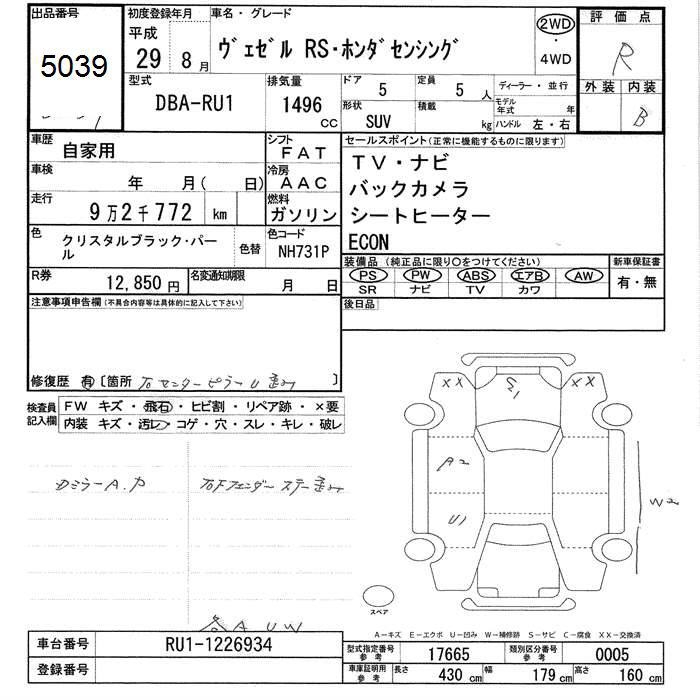 出品番号
5039
初度登録年月
平成
29 8月
車名・グレード
ヴェゼル RS・ホンダセンシング
2WD
・
4WD
評価点
R
外装 内装
B
型式
DBA-RU1
排気量
1496
CC
ドア 5
定員 5人
ディーラー・並行
形状 SUV
積載 kg
モデル年式 年
ハンドル 左・右
車歴
自家用
シフト
FAT
車検
年 月( 日)
冷房
AAC
走行
9万2千772 km
燃料
ガソリン
色
クリスタルブラック・パール
色替
色コード
NH731P
R券
12,850円
名変通知期限
月 日
セールスポイント(正常に機能するものに限ります)
TV・ナビ
バックカメラ
シートヒーター
ECON
装備品(純正品に限り○をつけてください)
新車保証書
PS PW ABS エアB AW
有・無
SR ナビ TV カワ
後日品
注意事項申告欄(不具合内容等は具体的に記入して下さい)
修復歴 有〔箇所 センターピラー U 〕
検査員
記入欄
FW キズ・飛石・ヒビ割・リペア跡・×要
内装 キズ・汚レ・コゲ・穴・スレ・キレ・破レ
ミラーA
フェンダーステー
A UW
XX
S1
XX
A2
U1
W2
スペア
A-キズ E-エクボ U-凹み W-補修跡 S-サビ C-腐食 XX-交換済
車台番号
RU1-1226934
登録番号
型式指定番号
参考
17665
類別区分番号
参考
0005
車庫証明用
参考
長さ 430 cm
幅 179 cm
高さ 160 cm